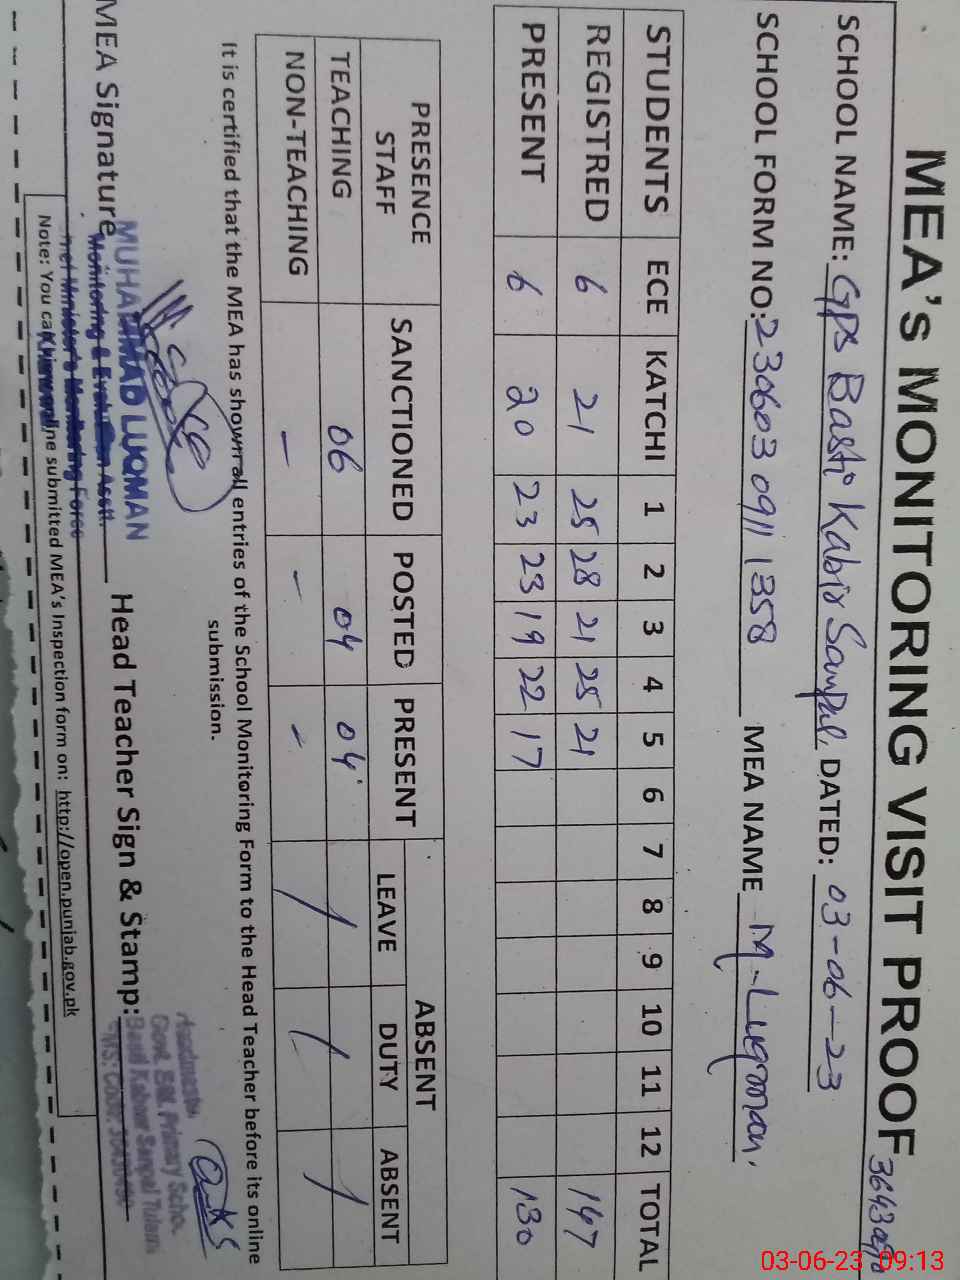 MEA's MONITORING VISIT PROOF
SCHOOL NAME: GPS Basti Kabir Sanpal, DATED: 03-06-23
SCHOOL FORM NO: 23060309111358 MEA NAME M-Luqman.
STUDENTS ECE KATCHI 1 2 3 4 5 6 7 8 9 10 11 12 TOTAL
REGISTRED 6 21 25 28 21 25 21 147
PRESENT 6 20 23 23 19 22 17 130
PRESENCE STAFF SANCTIONED POSTED PRESENT ABSENT
LEAVE DUTY ABSENT
TEACHING 06 04 04
NON-TEACHING - - -
It is certified that the MEA has shown all entries of the School Monitoring Form to the Head Teacher before its online
submission.
MEA Signature Head Teacher Sign & Stamp:
MUHAMMAD LUQMAN
Monitoring & Evaluation Asstt.
Chief Minister's Monitoring Force
Primary School
Note: You can view online submitted MEA's Inspection form on: http://open.punjab.gov.pk
03-06-23 09:13